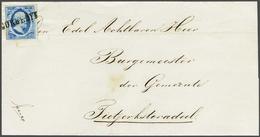 Den Edel Achtbaren Heer
Burgemeester
der Gemeente
Tietjerksteradeel
franco